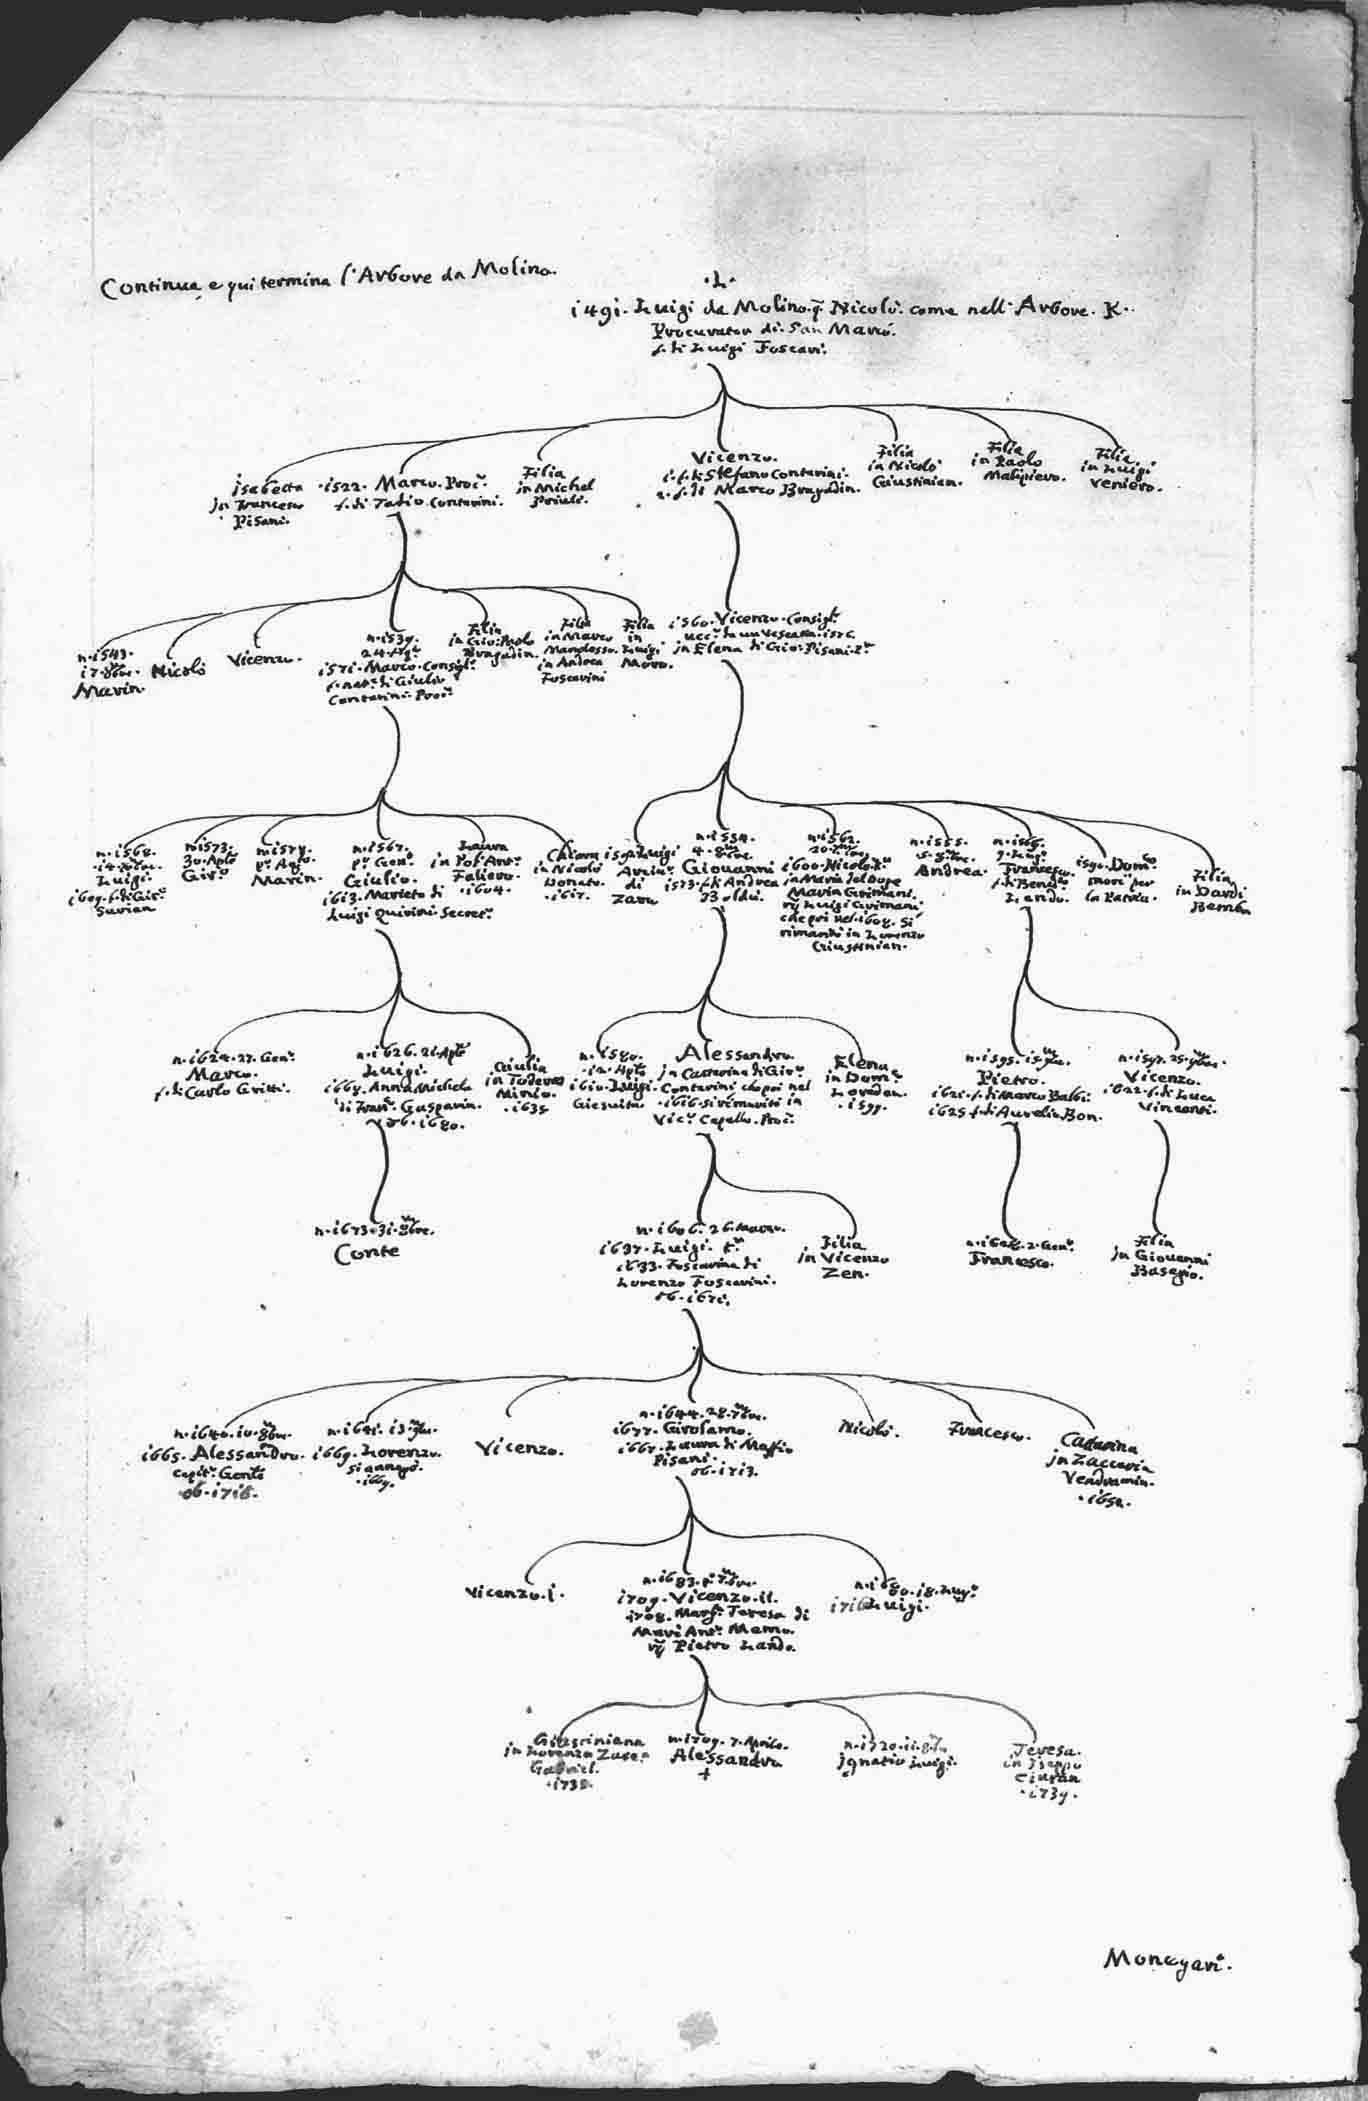 Continua, e qui termina l'Arbore da Molino.
.L.
1491. Luigi da Molino. q. Nicolò. come nell'Arbore. K.
Procurator di San Marco.
f. di Luigi Foscari.
Isabetta
in Francesco
Pisani.
1522. Marco. Proc.r
f. di Tadio Contarini.
Filia
in Michel
Priuli.
Vicenzo.
1. f. di Stefano Contarini.
2. f. di Marco Bragadin.
Filia
in Nicolò
Giustinian.
Filia
in Paolo
Malipiero.
Filia
in Luigi
Veniero.
n. 1543.
17. 8bre.
Marin.
Nicolò
Vicenzo.
n. 1539.
1571. Marco. Consigl.r
f. nat.l di Giulio
Contarini. Proc.r
Filia
in Gio: Paolo
Bragadin.
Filia
in Marco
in Andrea
Foscarini
Filia
in
Luigi
Moro.
1560. Vicenzo. Consigl.r
in Elena di Gio: Pisani. K.r
n. 1568.
Luigi.
1609. f. di Gir.o
Surian
n. 1573.
30. Aple
Gir.o
Marin.
n. 1567.
p.o Gen.o
Giulio.
1613. Marieta di
Luigi Quirini. Secret.o
Laura
in Pol' Ant.o
Faliero.
.1604.
Chiara
in Nicolò
Donato.
.1617.
Luigi
di
Zara
n. 1554.
Giovanni
1573. f. di Andrea
Boldù.
n. 1562.
1600. Nicolò. K.r
in Maria del Doge
Marin Grimani.
rq. Luigi Grimani
che poi nel. 1608. si
rimaritò in Lorenzo
Giustinian.
n. 1555.
Andrea
Francesco.
f. di Bened.o
Lando.
Dom.o
morì per
la Patria.
Filia
in Dardi
Bembo
n. 1624. 27. Gen.o
Marco.
f. di Carlo Gritti.
n. 1626. 21. Aple
Luigi.
Anna Michela
di Fran.o Gasparin.
ob. 1680.
Giulia
in Todero
Minio.
.1635
n. 1580.
.12. Aple
1610. Luigi.
Giesuita
Alessandro.
in Catterina di Gir.o
Contarini che poi nel
.1616. si rimaritò in
Vic.o Capello. Proc.r
Elena
in Dom.o
Loredan.
.1599.
n. 1595. 15.
Pietro.
1621. f. di Marco Balbi.
1625 f. di Aurelio Bon.
n. 1597. 25.
Vicenzo.
1622. f. di Luca
n. 1673. 31. 8bre.
Conte
n. 1606. 26. Marzo.
1637. Luigi. K.r
1633. Foscarina di
Lorenzo Foscarini.
ob. 1671.
Filia
in Vicenzo
Zen.
2. Gen.o
Francesco.
Filia
in Giovanni
Basegio.
n. 1640. 10. 8bre.
1665. Alessandro.
Capit.o Gen.le
ob. 1718.
n. 1641. 13.
1669. Lorenzo.
si annegò.
.1669.
Vicenzo.
n. 1644. 28. 7bre.
1677. Girolamo.
1667. Laura di Maffio
Pisani.
ob. 1713.
Nicolò.
Francesco.
Catarina
in Zaccaria
Vendramin.
Vicenzo. I.
n. 1683. p.o 7bre.
1709. Vicenzo. II.
1708. Mar.a Teresa di
Marc' Ant.o Memo.
rq. Pietro Lando.
Luigi.
Giustiniana
in Lorenzo
Gabriel.
.1738.
n. 1709. 7. Aprile.
Alessandro
+
n. 1720. 11.
Ignatio Luigi.
Teresa.
in Iseppo
Civran
.1739.
Monegari.